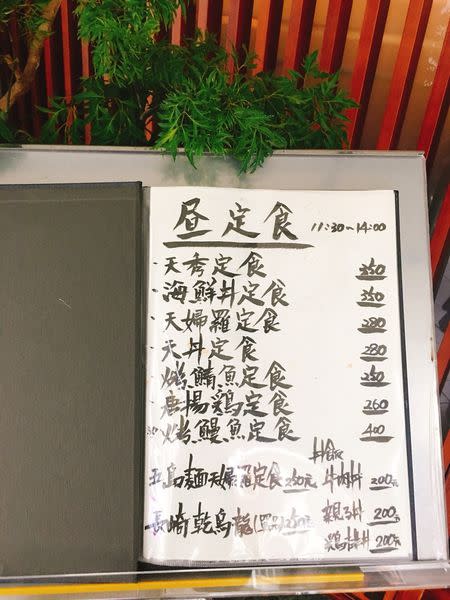 昼定食 11:30~14:00
天秀定食 350
海鮮丼定食 350
天婦羅定食 280
天丼定食 280
烤鯖魚定食 250
唐揚鶏定食 260
烤鰻魚定食 400
五島麺天婦羅定食250元
丼飯
牛肉丼 200元
長崎乾烏龍
親子丼 200元
200元